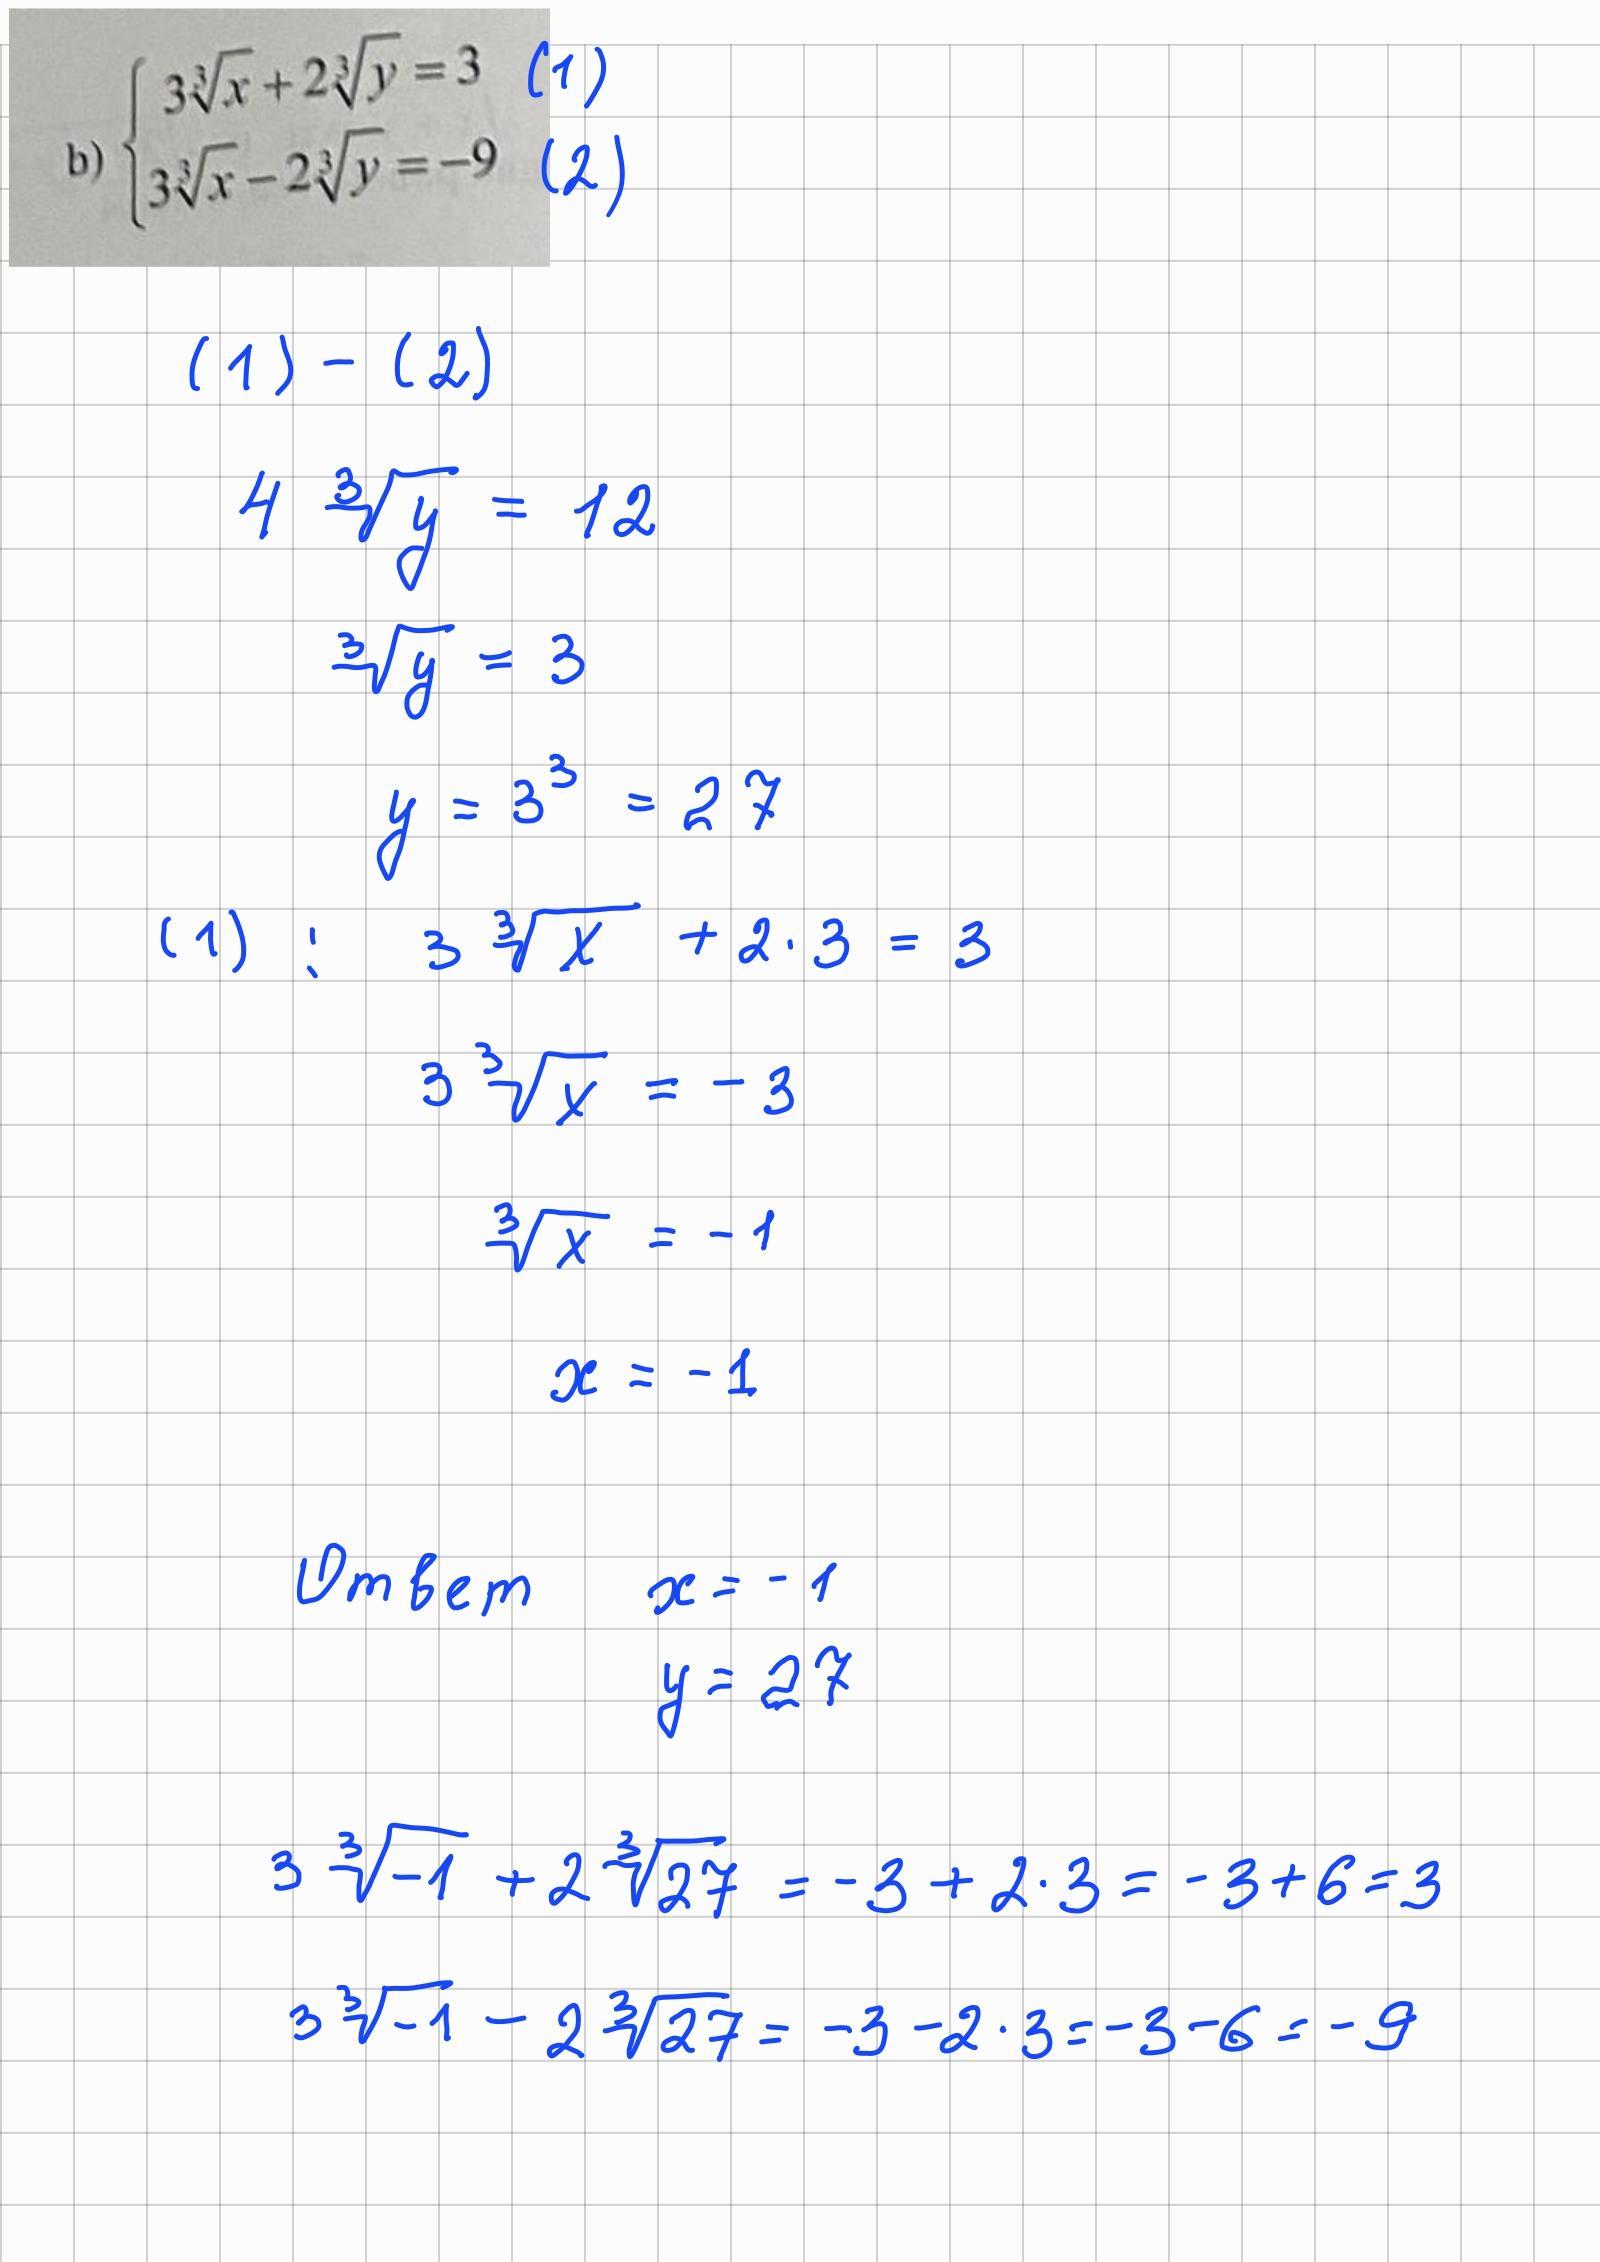 3∛x + 2∛y = 3 (1)
b) 3∛x − 2∛y = −9 (2)
(1) − (2)
4 ∛y = 12
∛y = 3
y = 3³ = 27
(1) : 3 ∛x + 2·3 = 3
3 ∛x = −3
∛x = −1
x = −1
Ответ x = −1
y = 27
3 ∛−1 + 2 ∛27 = −3 + 2·3 = −3 + 6 = 3
3 ∛−1 − 2 ∛27 = −3 −2·3 = −3 − 6 = −9